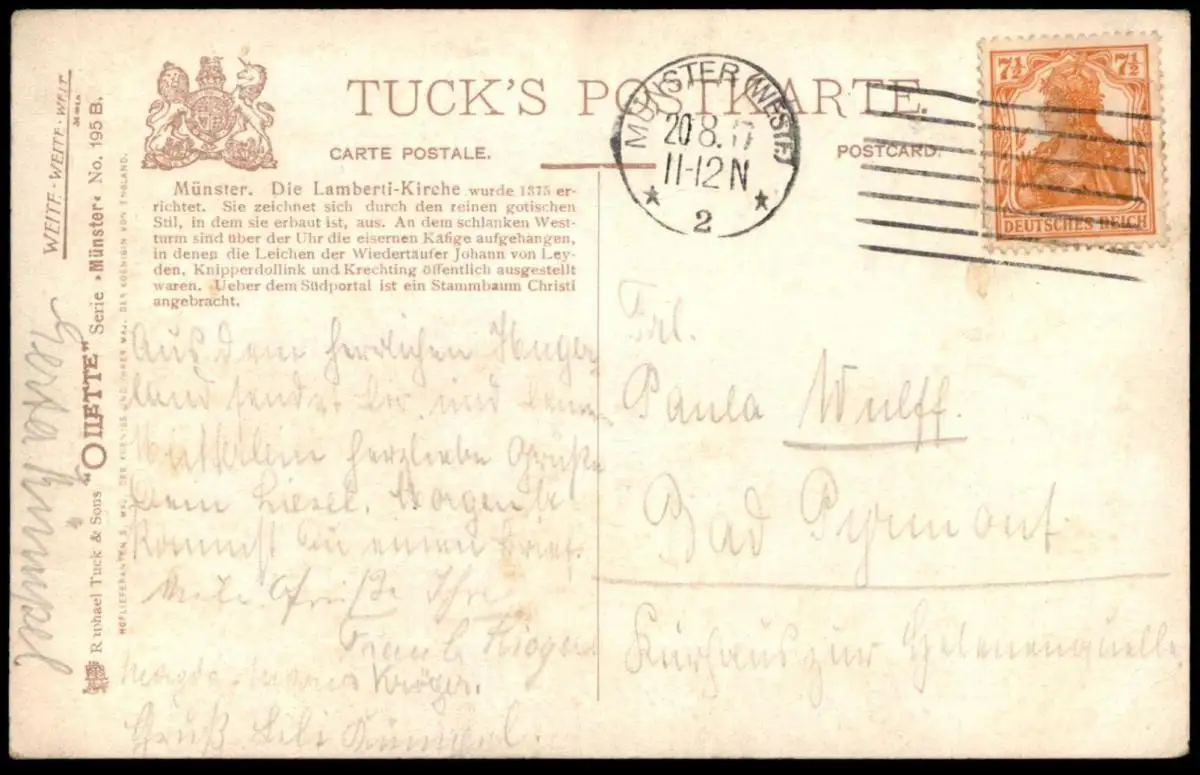 TUCK'S POSTKARTE.
CARTE POSTALE.
POSTCARD.
MÜNSTER (WESTF.)
20.8.17
11-12 N
2
7½ 7½
DEUTSCHES REICH
Münster. Die Lamberti-Kirche wurde 1375 er-
richtet. Sie zeichnet sich durch den reinen gotischen
Stil, in dem sie erbaut ist, aus. An dem schlanken West-
turm sind über der Uhr die eisernen Käfige aufgehangen,
in denen die Leichen der Wiedertäufer Johann von Ley-
den, Knipperdollink und Krechting öffentlich ausgestellt
waren. Ueber dem Südportal ist ein Stammbaum Christi
angebracht.
Aus dem herrlichen
land sendet Dir und
Mütterlein herzliebe Grüße
Dein Liesel. Morgen
kommst Du einen Brief.
Viele Grüße Ihre
Frau
Magda Kröger.
Gruß Lili Kümpel.
Frl.
Paula Wulff.
Bad Pyrmont
Kurhaus zur Helenenquelle
WEITE-WEITE-WELT
Raphael Tuck & Sons "OILETTE" Serie »Münster« No. 195 B.
HOFLIEFERANTEN S. MAJ. DES KOENIGS UND IHRER MAJ. DER KOENIGIN VON ENGLAND.
Herta Kümpel